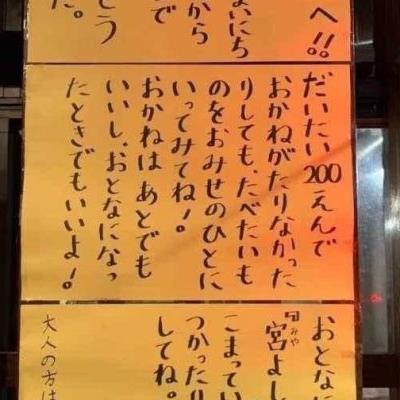 へ!!
いにち
から
で
とう
た。
だいたい200えんで
おかねがたりなかった
りしても、たべたいも
のをおみせのひとに
いってみてね!
おかねは あとでも
いいし、おとなになっ
たときでもいいよ!
おとなに
みや
宮よし
こまってい
つかったり
してね。
大人の方は